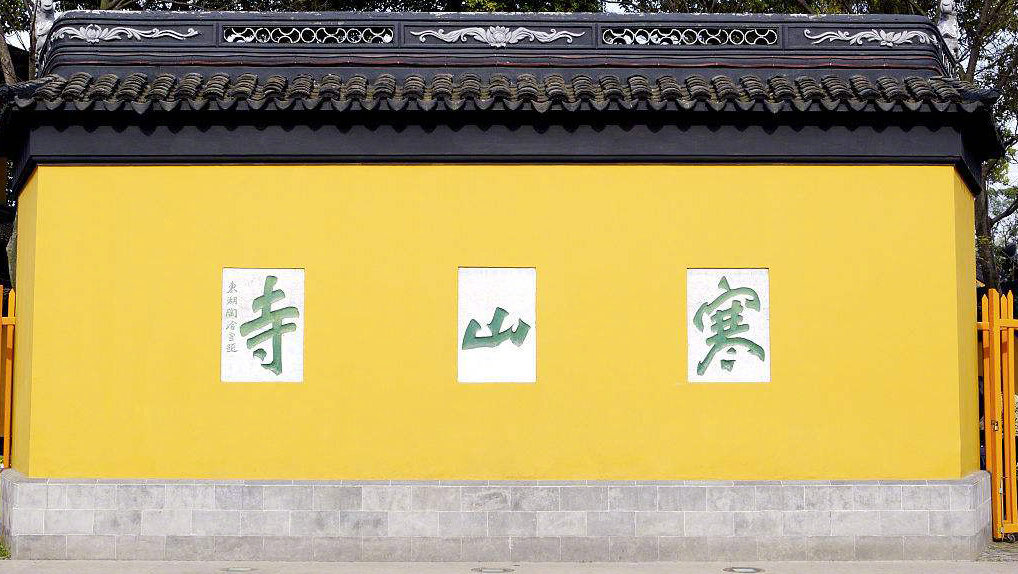 寒山寺
東湖陶濬宣題